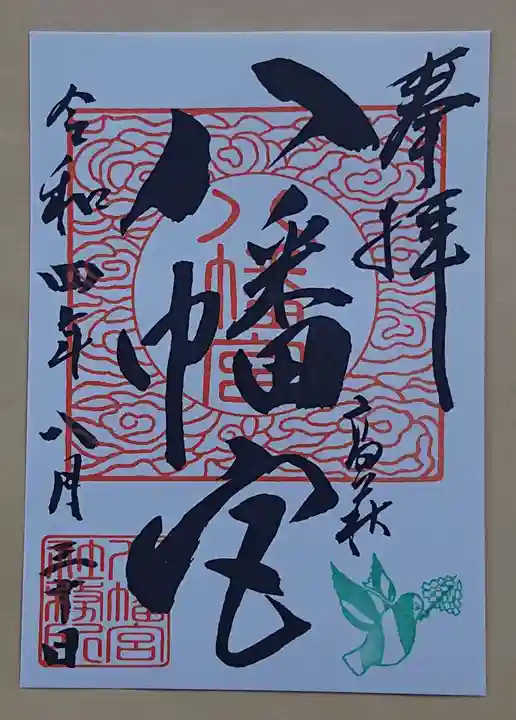 奉拝
高萩
八幡宮
八幡宮
令和四年八月三十日
八幡宮
社務所